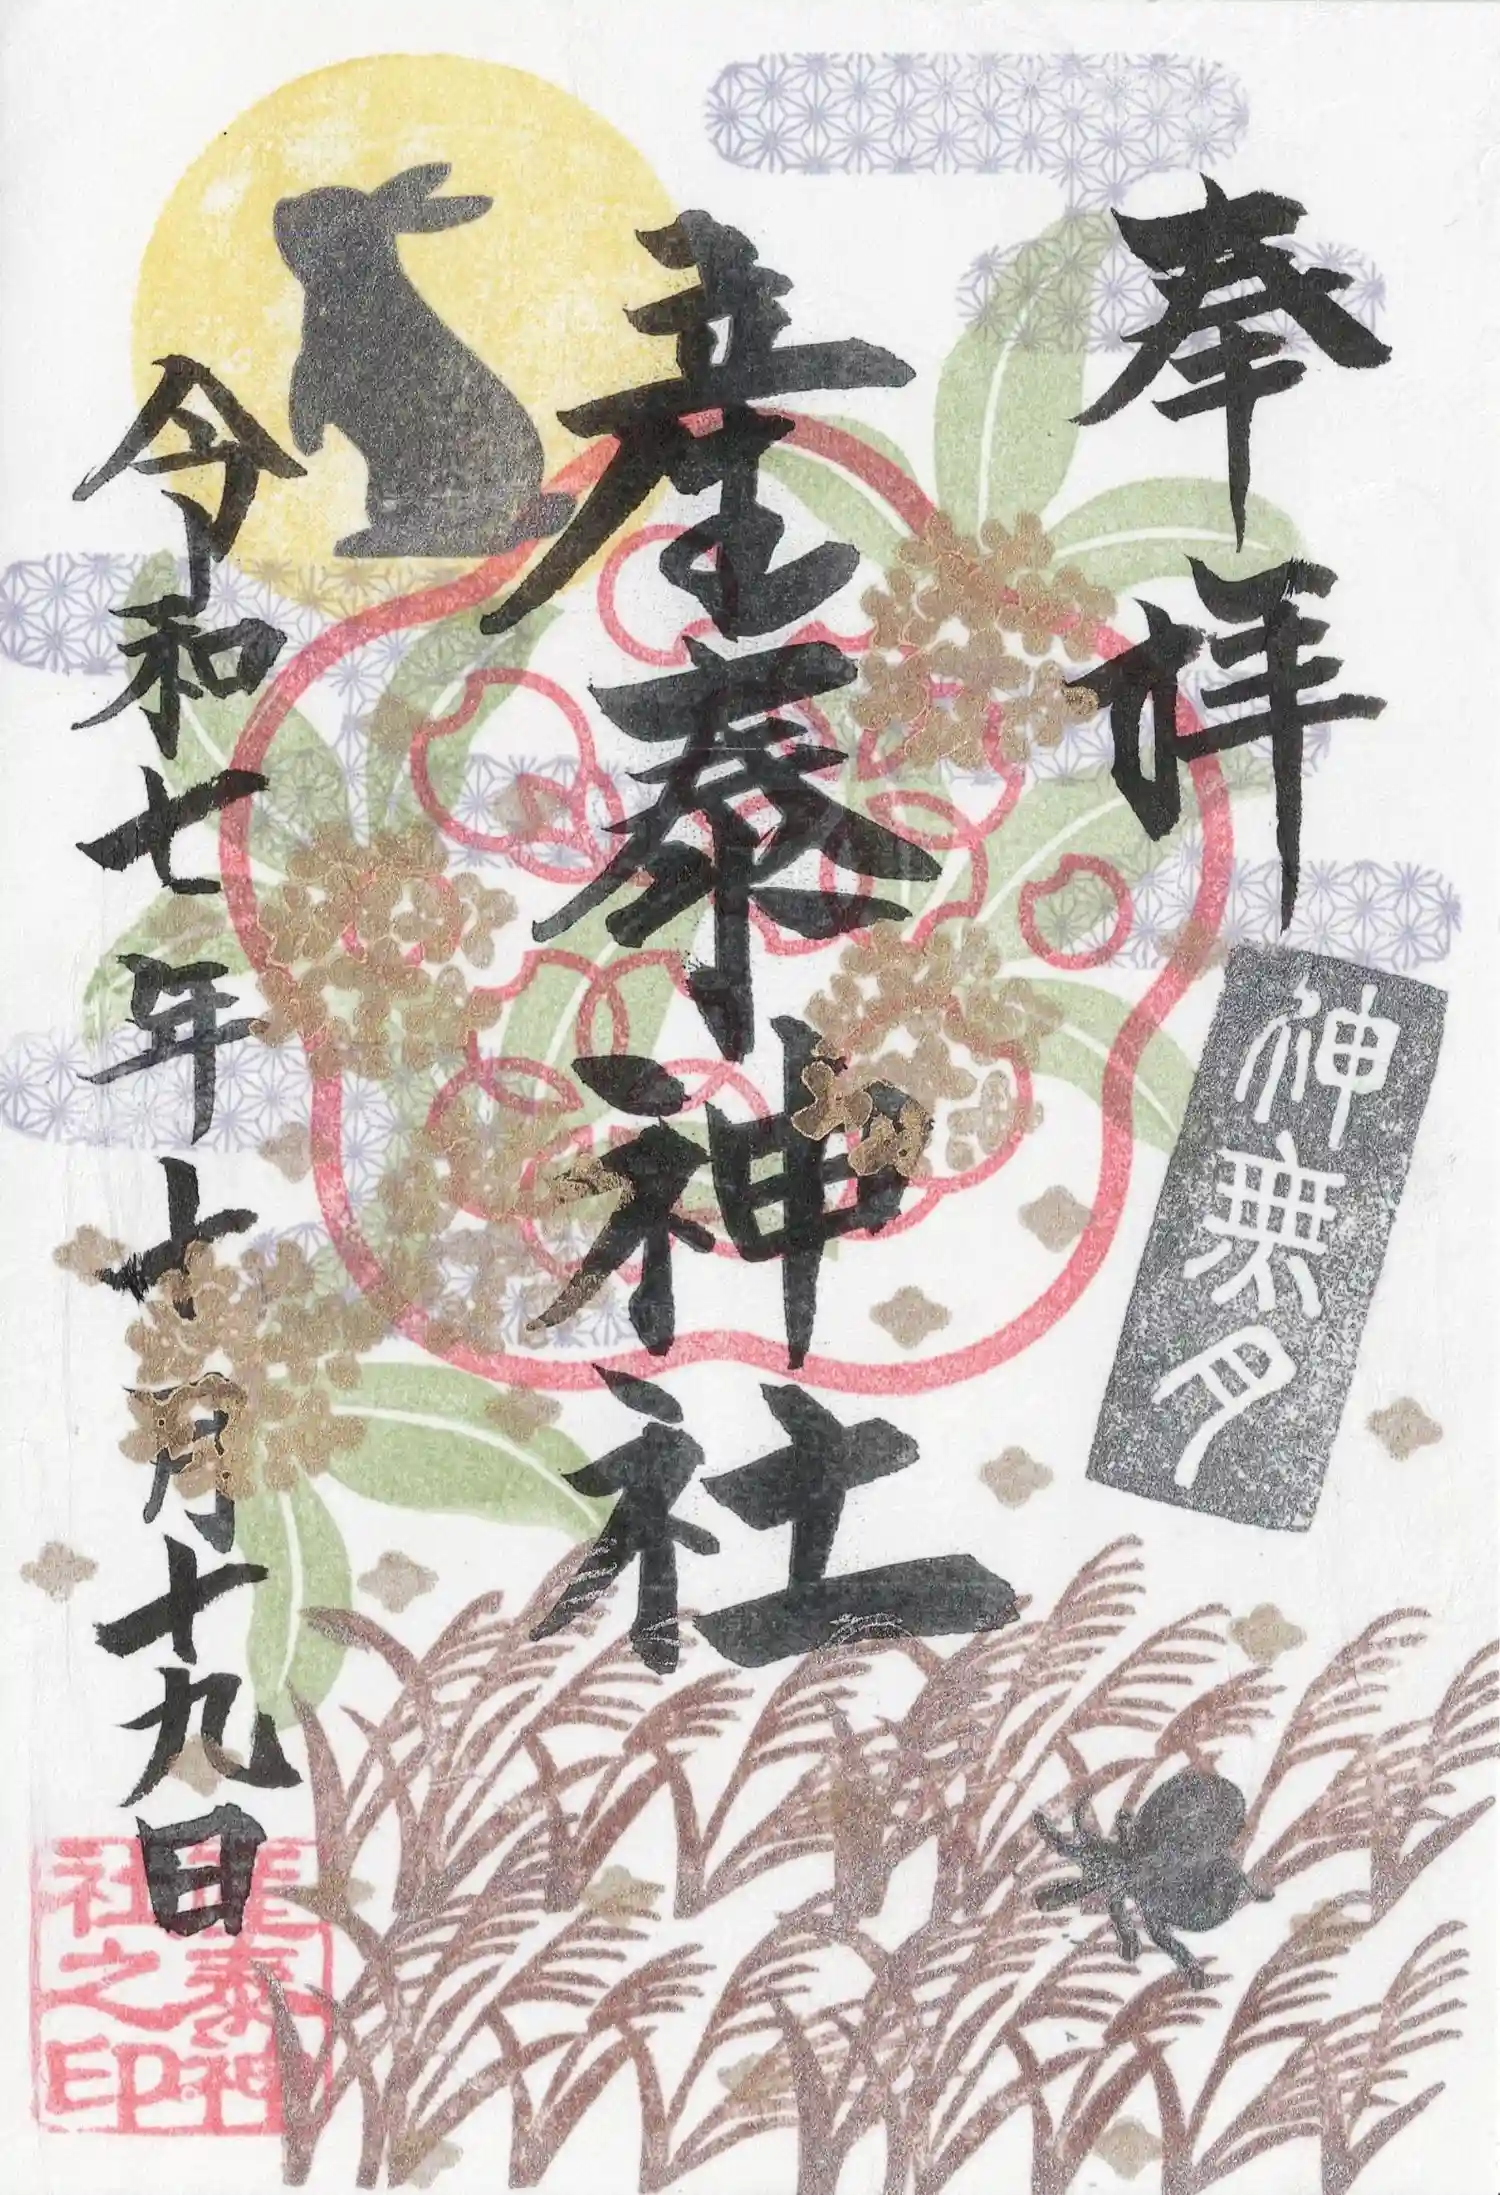 奉拝
神無月
産泰神社
令和七年十月十九日
産泰神
社之印